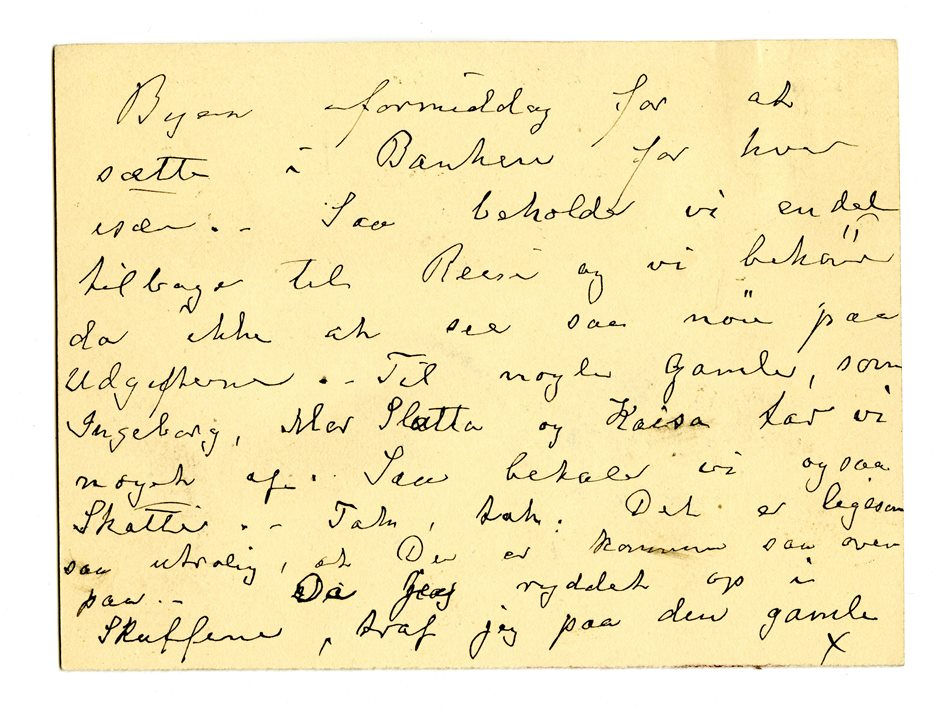 Byen iformiddag for at
sætte i Banken for hver
især. - Saa beholder vi en del
tilbage til Reise og vi behöve
da ikke at see saa nöie paa
Udgifterne. - Til nogle Gamle, som
Ingeborg, Mor Slatta og Kaisa tar vi
noget af. Saa betaler vi ogsaa
Skatter. - Tak, tak. Det er ligesom
saa utrolig, at Du er kommen saa oven
paa. - Da jeg ryddet op i
Skuffene, traf jeg paa den gamle
x